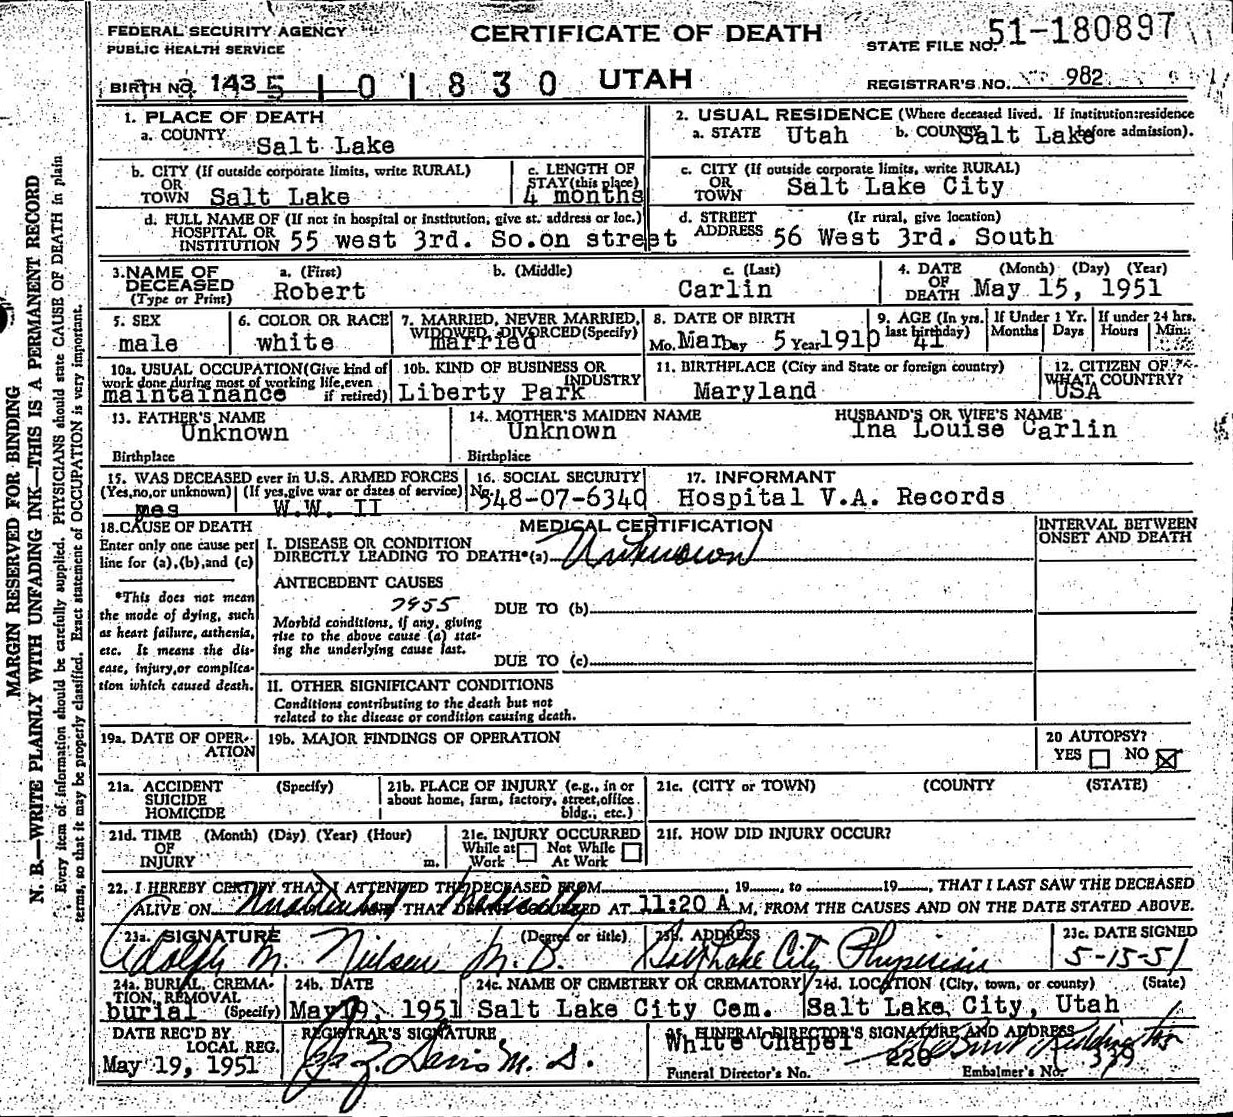 FEDERAL SECURITY AGENCY
PUBLIC HEALTH SERVICE
CERTIFICATE OF DEATH
STATE FILE NO. 51-180897
BIRTH NO. 143 5 1 0 1 8 3 0
UTAH
REGISTRAR'S NO. 982
MARGIN RESERVED FOR BINDING
N. B.—WRITE PLAINLY WITH UNFADING INK—THIS IS A PERMANENT RECORD
Every item of information should be carefully supplied. PHYSICIANS should state CAUSE OF DEATH in plain
terms, so that it may be properly classified. Exact statement of OCCUPATION is very important.
1. PLACE OF DEATH
a. COUNTY Salt Lake
2. USUAL RESIDENCE (Where deceased lived. If institution:residence
before admission).
a. STATE Utah b. COUNTY Salt Lake
b. CITY (If outside corporate limits, write RURAL)
OR
TOWN Salt Lake
c. LENGTH OF
STAY (this place)
4 months
c. CITY (If outside corporate limits, write RURAL)
OR
TOWN Salt Lake City
d. FULL NAME OF (If not in hospital or institution, give st. address or loc.)
HOSPITAL OR
INSTITUTION 55 west 3rd. So.on street
d. STREET (Ir rural, give location)
ADDRESS 56 West 3rd. South
3. NAME OF
DECEASED
(Type or Print)
a. (First)
Robert
b. (Middle)
c. (Last)
Carlin
4. DATE (Month) (Day) (Year)
OF
DEATH May 15, 1951
5. SEX
male
6. COLOR OR RACE
white
7. MARRIED, NEVER MARRIED,
WIDOWED, DIVORCED (Specify)
married
8. DATE OF BIRTH
Mo. Mar Day 5 Year 1910
9. AGE (In yrs.
last birthday)
41
If Under 1 Yr.
Months Days
If under 24 hrs.
Hours Min.
10a. USUAL OCCUPATION (Give kind of
work done during most of working life, even
if retired)
maintainance
10b. KIND OF BUSINESS OR
INDUSTRY
Liberty Park
11. BIRTHPLACE (City and State or foreign country)
Maryland
12. CITIZEN OF
WHAT COUNTRY?
USA
13. FATHER'S NAME
Unknown
Birthplace
14. MOTHER'S MAIDEN NAME
Unknown
Birthplace
HUSBAND'S OR WIFE'S NAME
Ina Louise Carlin
15. WAS DECEASED ever in U.S. ARMED FORCES
(Yes, no, or unknown) (If yes, give war or dates of service)
W.W. II
16. SOCIAL SECURITY
No. 548-07-6340
17. INFORMANT
Hospital V.A. Records
18. CAUSE OF DEATH
Enter only one cause per
line for (a), (b), and (c)
*This does not mean
the mode of dying, such
as heart failure, asthenia,
etc. It means the dis-
ease, injury, or complica-
tion which caused death.
MEDICAL CERTIFICATION
I. DISEASE OR CONDITION
DIRECTLY LEADING TO DEATH*(a) Unknown
ANTECEDENT CAUSES
7955
DUE TO (b)
Morbid conditions, if any, giving
rise to the above cause (a) stat-
ing the underlying cause last.
DUE TO (c)
II. OTHER SIGNIFICANT CONDITIONS
Conditions contributing to the death but not
related to the disease or condition causing death.
INTERVAL BETWEEN
ONSET AND DEATH
19a. DATE OF OPER-
ATION
19b. MAJOR FINDINGS OF OPERATION
20 AUTOPSY?
YES NO
21a. ACCIDENT (Specify)
SUICIDE
HOMICIDE
21b. PLACE OF INJURY (e.g., in or
about home, farm, factory, street, office
bldg., etc.)
21c. (CITY or TOWN) (COUNTY) (STATE)
21d. TIME (Month) (Day) (Year) (Hour)
OF
INJURY m.
21e. INJURY OCCURRED
While at Not While
Work At Work
21f. HOW DID INJURY OCCUR?
22. I HEREBY CERTIFY THAT I ATTENDED THE DECEASED FROM , 19 , to 19 , THAT I LAST SAW THE DECEASED
ALIVE ON Unattended Medically THAT DEATH OCCURRED AT 11:20 A M, FROM THE CAUSES AND ON THE DATE STATED ABOVE.
23a. SIGNATURE (Degree or title)
Adolph M. Nielsen M.D.
23b. ADDRESS
Salt Lake City Physician
23c. DATE SIGNED
5-15-51
24a. BURIAL, CREMA-
TION, REMOVAL
(Specify)
burial
24b. DATE
May 19, 1951
24c. NAME OF CEMETERY OR CREMATORY
Salt Lake City Cem.
24d. LOCATION (City, town, or county) (State)
Salt Lake City, Utah
DATE REC'D BY
LOCAL REG.
May 19, 1951
REGISTRAR'S SIGNATURE
Davis M. D.
25. FUNERAL DIRECTOR'S SIGNATURE AND ADDRESS
White Chapel
Funeral Director's No. 220
Embalmer's No. 339